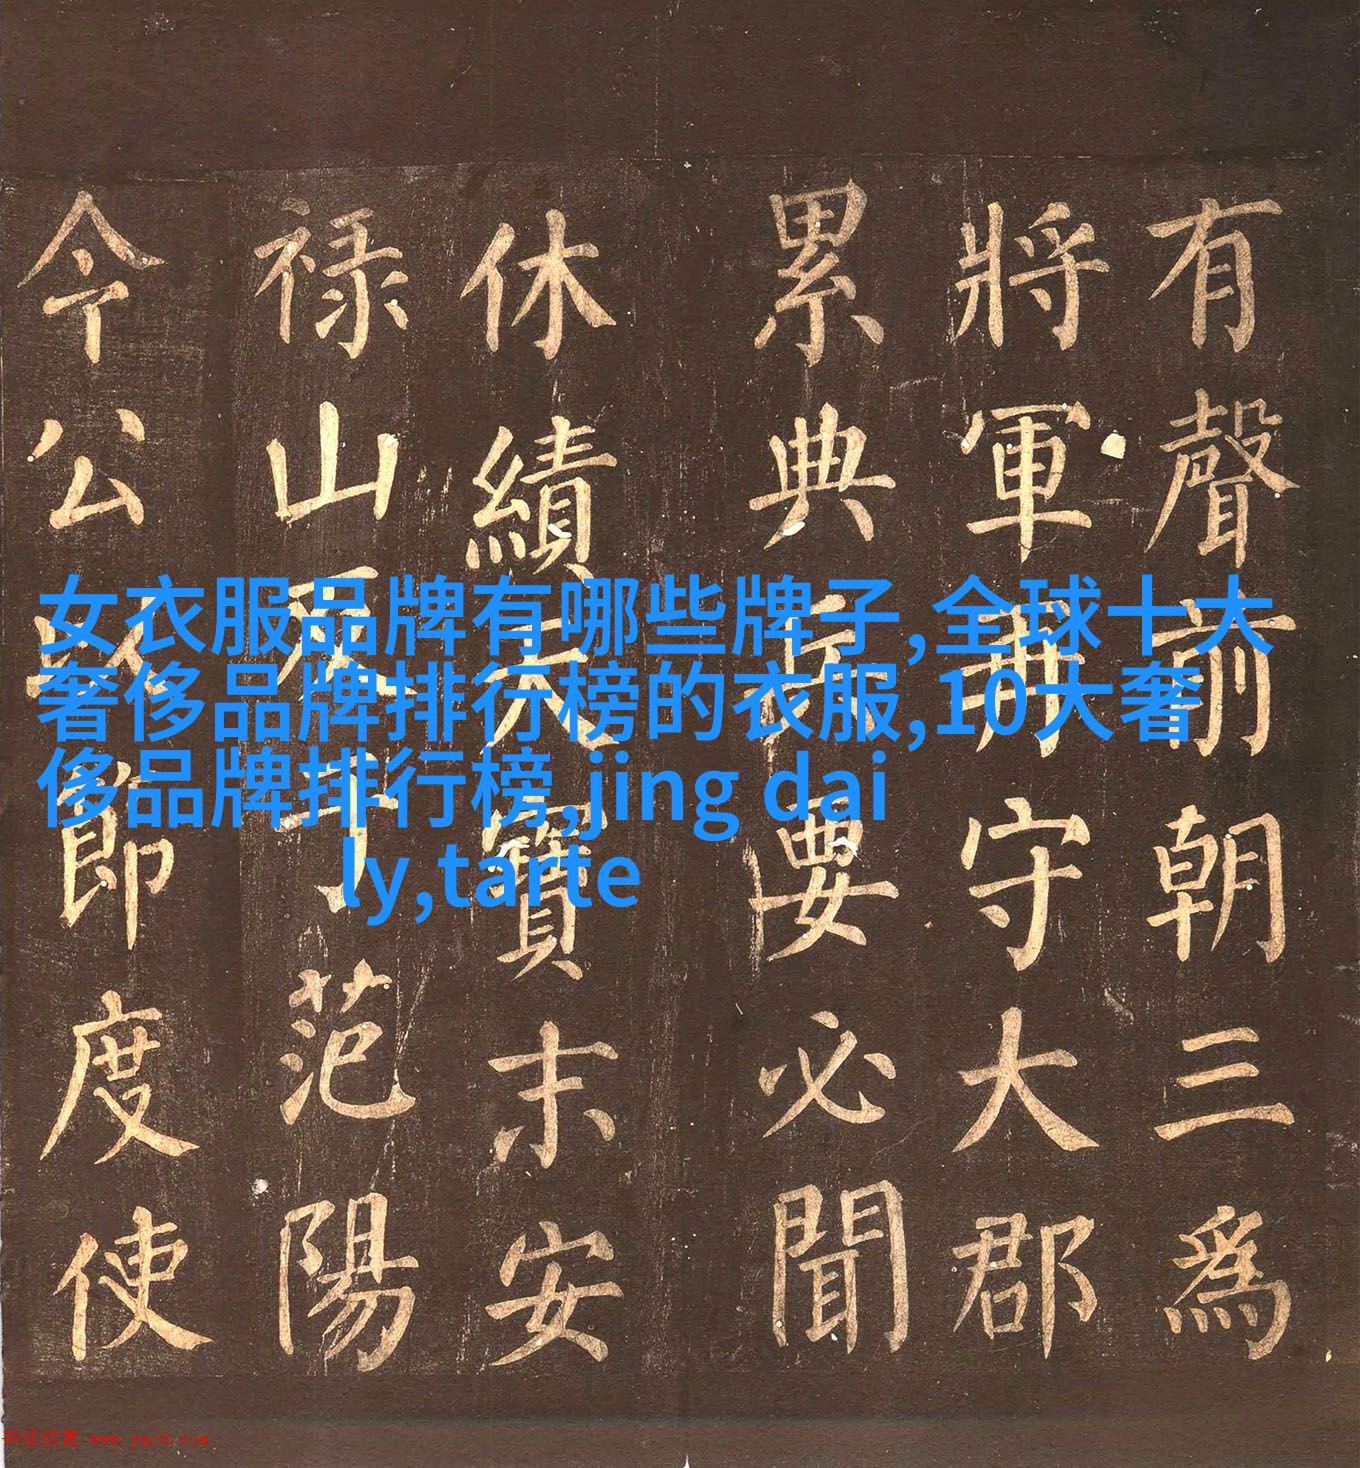 女衣服品牌有哪些牌子,全球十大
奢侈品牌排行榜的衣服,10大奢
侈品牌排行榜,jing dai
ly,tarte
有聲前朝三為
將軍再守大郡
累典兵要必聞
休績天寶末安
禄山反于范陽
今公以節度使
书法欣赏 www.yac8.com